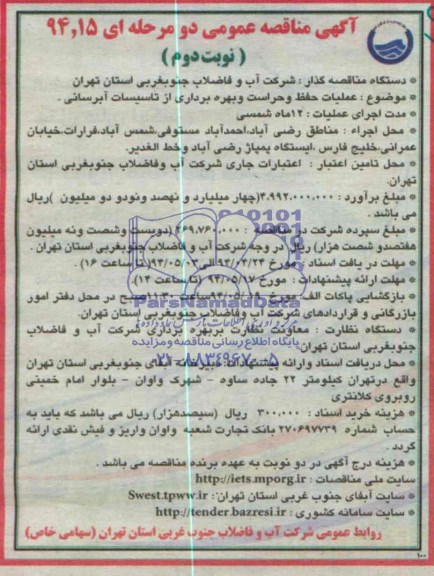 آگهی مناقصه عمومی دو مرحله ای ۹۴,۱۵
( نوبت دوم )
* دستگاه مناقصه گذار : شرکت آب و فاضلاب جنوبغربی استان تهران
* موضوع : عملیات حفظ وحراست وبهره برداری از تاسیسات آبرسانی .
* مدت اجرای عملیات : ۱۲ماه شمسی
* محل اجراء : مناطق رضی آباد،احمدآباد مستوفی،شمس آباد،فرارات،خیابان
عمرانی،خلیج فارس ،ایستگاه پمپاژ رضی آباد وخط الغدیر.
* محل تامین اعتبار : اعتبارات جاری شرکت آب وفاضلاب جنوبغربی استان
تهران.
* مبلغ برآورد : ۴،۹۹۲،۰۰۰،۰۰۰(چهار میلیارد و نهصد ونودو دو میلیون )ریال
می باشد .
* مبلغ سپرده شرکت در مناقصه : ۲۶۹،۷۶۰،۰۰۰ (دویست وشصت ونه میلیون
هفتصدو شصت هزار) ریال در وجه شرکت آب و فاضلاب جنوبغربی استان تهران .
* مهلت در یافت اسناد : مورخ ۹۴/۰۴/۲۴ الی ۹۴/۰۵/۰۳( تا ساعت ۱۶) .
* مهلت ارائه پیشنهادات : مورخ ۹۴/۰۵/۱۷ (تا ساعت ۱۴).
* بازگشایی پاکات الف مورخ ساعت ۱۱:۳۰ صبح در محل دفتر امور
بازرگانی و قراردادهای شرکت آب وفاضلاب جنوبغربی استان تهران.
* دستگاه نظارت : معاونت نظارت بربهره برداری شرکت آب و فاضلاب
جنوبغربی استان تهران
* محل دریافت اسناد وارائه پیشنهادات: دبیرخانه آبفای جنوبغربی استان تهران
واقع درتهران کیلومتر ۲۲ جاده ساوه - شهرک واوان - بلوار امام خمینی
روبروی کلانتری
* هزینه خرید اسناد : ۳۰۰،۰۰۰ ریال (سیصدهزار) ریال می باشد که باید به
حساب شماره ۲۷۰۶۹۷۷۳۹ بانک تجارت شعبه واوان واریز و فیش نقدی ارائه
گردد .
* هزینه درج آگهی در دو نوبت به عهده برنده مناقصه می باشد .
سایت ملی مناقصات : http://iets.mporg.ir
* سایت آبفای جنوب غربی استان تهران: Swest.tpww.ir
* سایت سامانه کشوری : http://tender.bazresi.ir
روابط عمومی شرکت آب و فاضلاب جنوب غربی استان تهران (سهامی خاص)
ParsNamadData
پایگاه اطلاع رسانی مناقصه ومزایده
۰۲۱-۸۸۳۴۹۶۷۰-۵